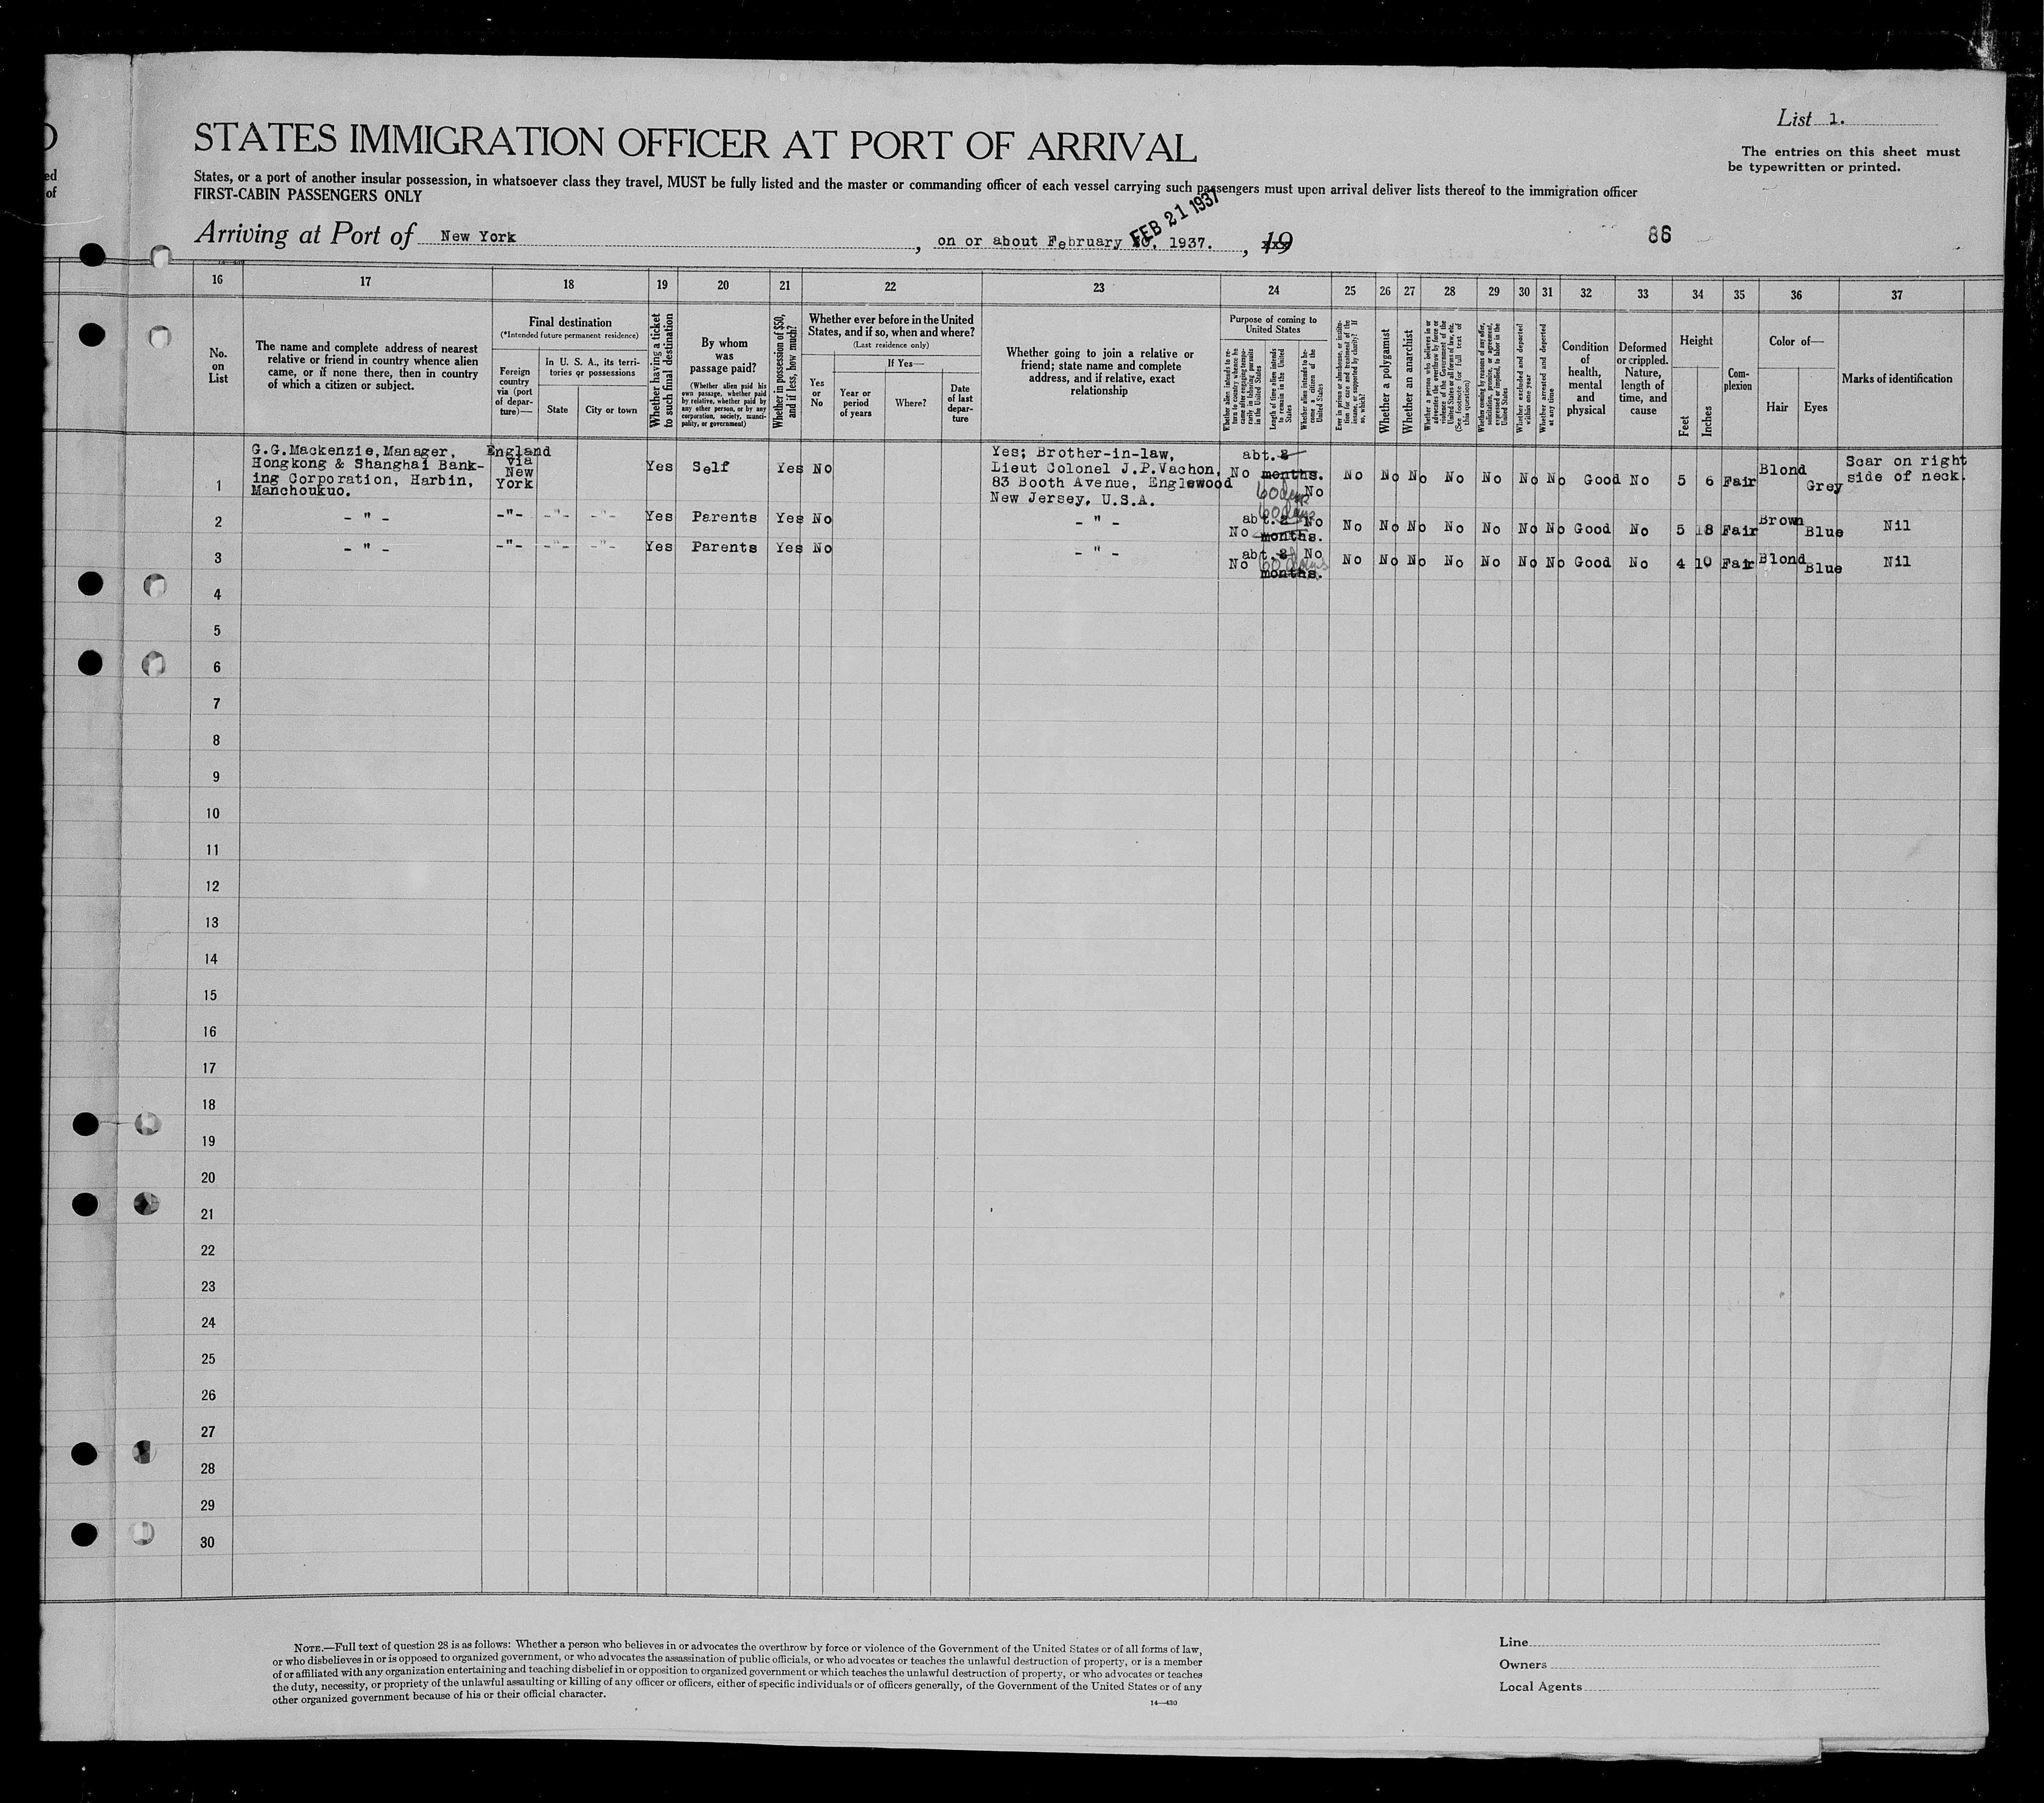 List 1.
STATES IMMIGRATION OFFICER AT PORT OF ARRIVAL
The entries on this sheet must
be typewritten or printed.
ed
of
States, or a port of another insular possession, in whatsoever class they travel, MUST be fully listed and the master or commanding officer of each vessel carrying such passengers must upon arrival deliver lists thereof to the immigration officer
FIRST-CABIN PASSENGERS ONLY
FEB 21 1937
Arriving at Port of New York, on or about February 1937., 19
86
16 17 18 19 20 21 22 23 24 25 26 27 28 29 30 31 32 33 34 35 36 37
No.
on
List
The name and complete address of nearest
relative or friend in country whence alien
came, or if none there, then in country
of which a citizen or subject.
Final destination
(*Intended future permanent residence)
Foreign
country
via (port
of depar-
ture)—
In U. S. A., its terri-
tories or possessions
State
City or town
Whether having a ticket
to such final destination
By whom
was
passage paid?
(Whether alien paid his
own passage, whether paid
by relative, whether paid by
any other person, or by any
corporation, society, munici-
pality, or government)
Whether in possession of $50,
and if less, how much?
Whether ever before in the United
States, and if so, when and where?
(Last residence only)
Yes
or
No
If Yes—
Year or
period
of years
Where?
Date
of last
depar-
ture
Whether going to join a relative or
friend; state name and complete
address, and if relative, exact
relationship
Purpose of coming to
United States
Whether alien intends to re-
turn to country whence he
came after engaging tempo-
rarily in laboring pursuits
in the United States
Length of time alien intends
to remain in the United
States
Whether alien intends to be-
come a citizen of the
United States
Ever in prison or almshouse, or institu-
tion for care and treatment of the
insane, or supported by charity? If
so, which?
Whether a polygamist
Whether an anarchist
Whether a person who believes in or
advocates the overthrow by force or
violence of the Government of the
United States or all forms of law, etc.
(See footnote for full text of
this question)
Whether coming by reasons of any offer,
solicitation, promise, or agreement,
expressed or implied, to labor in the
United States
Whether excluded and deported
within one year
Whether arrested and deported
at any time
Condition
of
health,
mental
and
physical
Deformed
or crippled.
Nature,
length of
time, and
cause
Height
Feet
Inches
Com-
plexion
Color of—
Hair
Eyes
Marks of identification
1
G.G.Mackenzie,Manager,
Hongkong & Shanghai Bank-
ing Corporation, Harbin,
Manchoukuo.
England
via
New
York
Yes Self Yes No
Yes; Brother-in-law,
Lieut Colonel J.P.Vachon,
83 Booth Avenue, Englewood
New Jersey, U.S.A.
abt. 2
No months.
60 days No
No No No No No No No Good No 5 6 Fair Blond Grey
Scar on right
side of neck.
2 - " - -"- -"- -"- Yes Parents Yes No - " -
60 days
abt. 2 No
No months.
No No No No No No No Good No 5 Fair Brown Blue Nil
3 - " - -"- -"- -"- Yes Parents Yes No - " -
abt. 2 No
No 60 days
months.
No No No No No No No Good No 4 10 Fair Blond Blue Nil
4
5
6
7
8
9
10
11
12
13
14
15
16
17
18
19
20
21
22
23
24
25
26
27
28
29
30
NOTE.—Full text of question 28 is as follows: Whether a person who believes in or advocates the overthrow by force or violence of the Government of the United States or of all forms of law,
or who disbelieves in or is opposed to organized government, or who advocates the assassination of public officials, or who advocates or teaches the unlawful destruction of property, or is a member
of or affiliated with any organization entertaining and teaching disbelief in or opposition to organized government or which teaches the unlawful destruction of property, or who advocates or teaches
the duty, necessity, or propriety of the unlawful assaulting or killing of any officer or officers, either of specific individuals or of officers generally, of the Government of the United States or of any
other organized government because of his or their official character.
14—430
Line
Owners
Local Agents